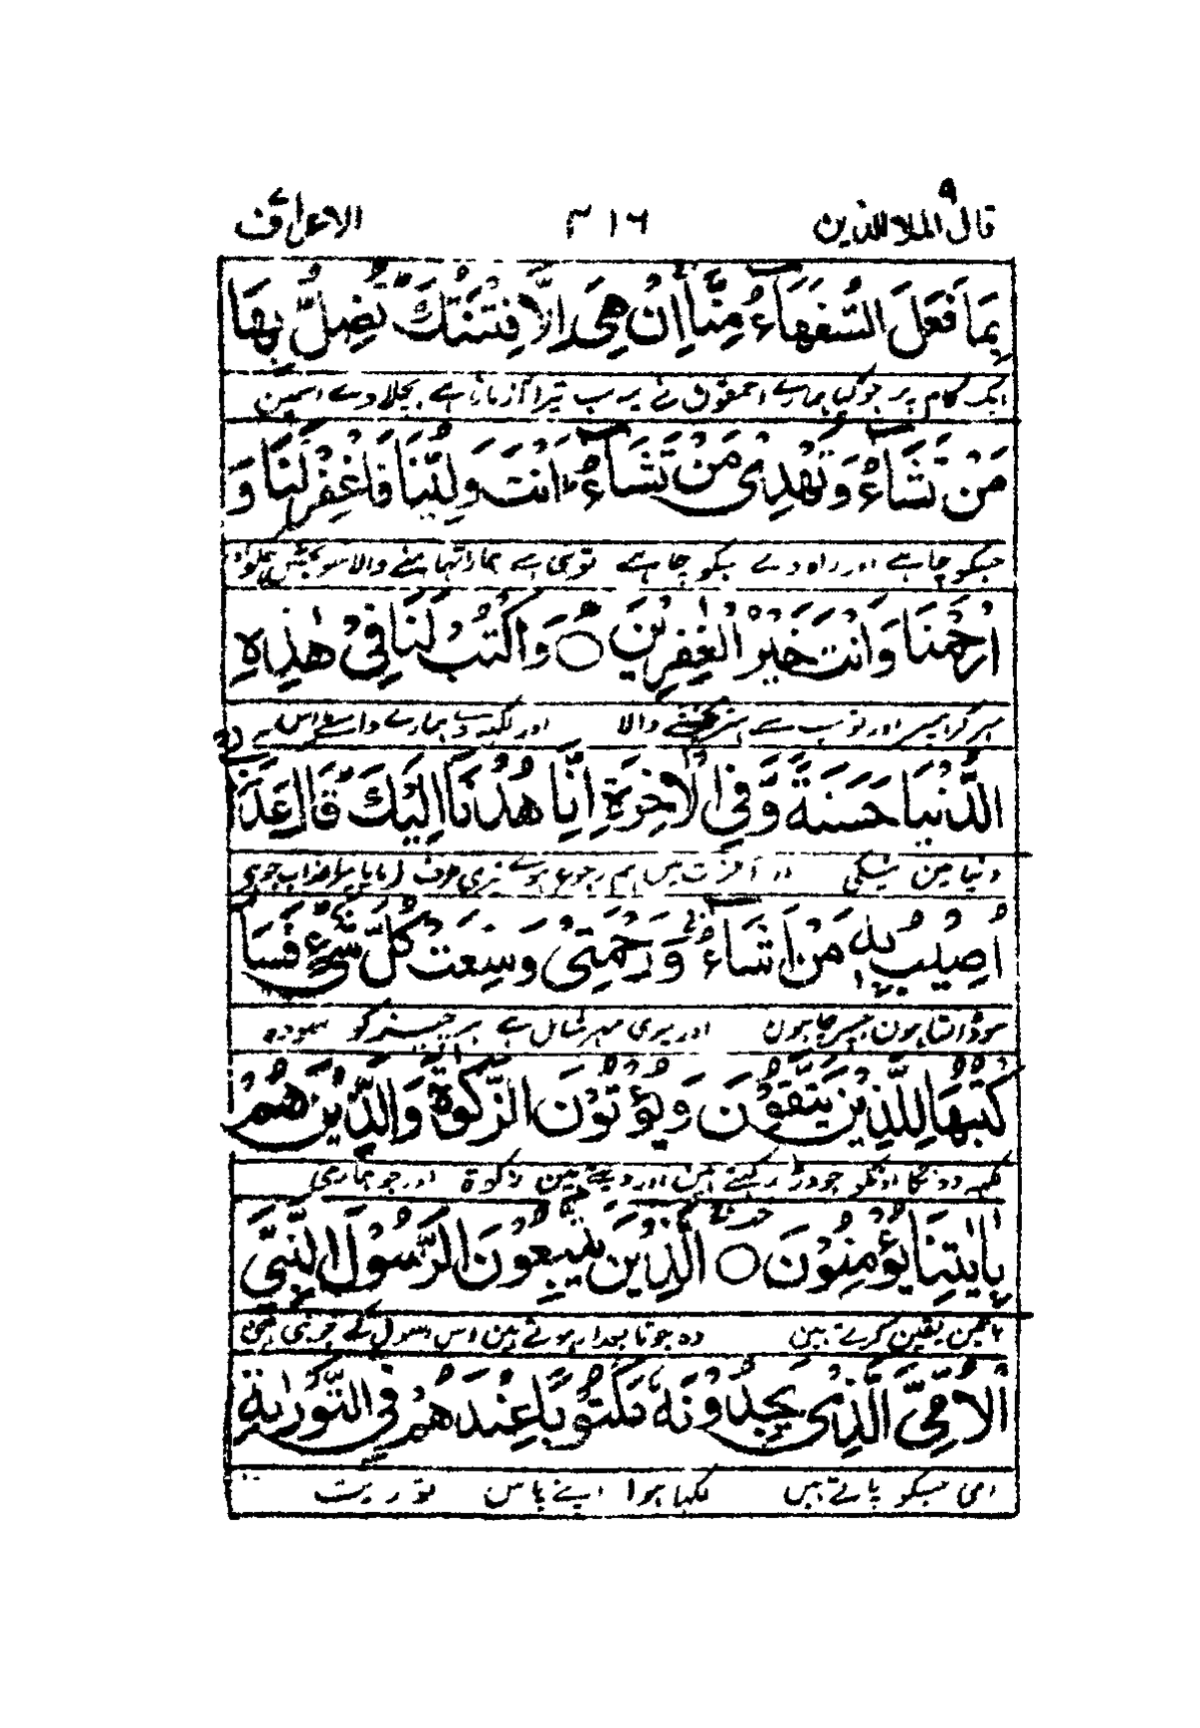 قال الملا للذين ۹ ۳۱۶ الاعراف ۷
بِمَا فَعَلَ السُّفَهَآءُ مِنَّا إِنْ هِيَ إِلَّا فِتْنَتُكَ تُضِلُّ بِهَا
ایک کام پر جو کیا ہمارے احمقوں نے یہ سب تیرا آزمانا ہے بچلا دے اسمین
مَنْ تَشَآءُ وَتَهْدِي مَنْ تَشَآءُ اَنْتَ وَلِيُّنَا فَاغْفِرْ لَنَا وَ
جسکو چاہے اور راہ دے جسکو چاہے توہی ہے ہمارا تھامنے والا سو بخش ہمکو اور
ارْحَمْنَا وَاَنْتَ خَيْرُ الْغٰفِرِيْنَ ○ وَاكْتُبْ لَنَا فِيْ هٰذِهِ
مہر کر ہمپر اور تو سب سے بہتر بخشنے والا اور لکھدے ہمارے واسطے اس
الدُّنْيَا حَسَنَةً وَّفِي الْاٰخِرَةِ اِنَّا هُدْنَآ اِلَيْكَ قَالَ عَذَابِيْٓ
دنیا مین نیکی اور آخرت میں ہم رجوع ہوے تیری طرف فرمایا میرا عذاب جو ہی
اُصِيْبُ بِهٖ مَنْ اَشَآءُ وَرَحْمَتِيْ وَسِعَتْ كُلَّ شَيْءٍ فَسَاَ
سو ڈالتا ہون جسپر چاہون اور میری مہر شامل ہے ہر چیز کو سو وہ
كْتُبُهَا لِلَّذِيْنَ يَتَّقُوْنَ وَيُؤْتُوْنَ الزَّكٰوةَ وَالَّذِيْنَ هُمْ
لکھ دونگا اونکو جو ڈر رکھتے ہین اور دیتے ہین زکوۃ اور جو ہماری
بِاٰيٰتِنَا يُؤْمِنُوْنَ ○ اَلَّذِيْنَ يَتَّبِعُوْنَ الرَّسُوْلَ النَّبِيَّ
باتین یقین کرتے ہین وہ جو تابعدار ہوتے ہین اس رسول کے جو نبی ہی
الْاُمِّيَّ الَّذِيْ يَجِدُوْنَهٗ مَكْتُوْبًا عِنْدَهُمْ فِي التَّوْرٰىةِ
امی جسکو پاتے ہیں لکھا ہوا اپنے پاس توریت